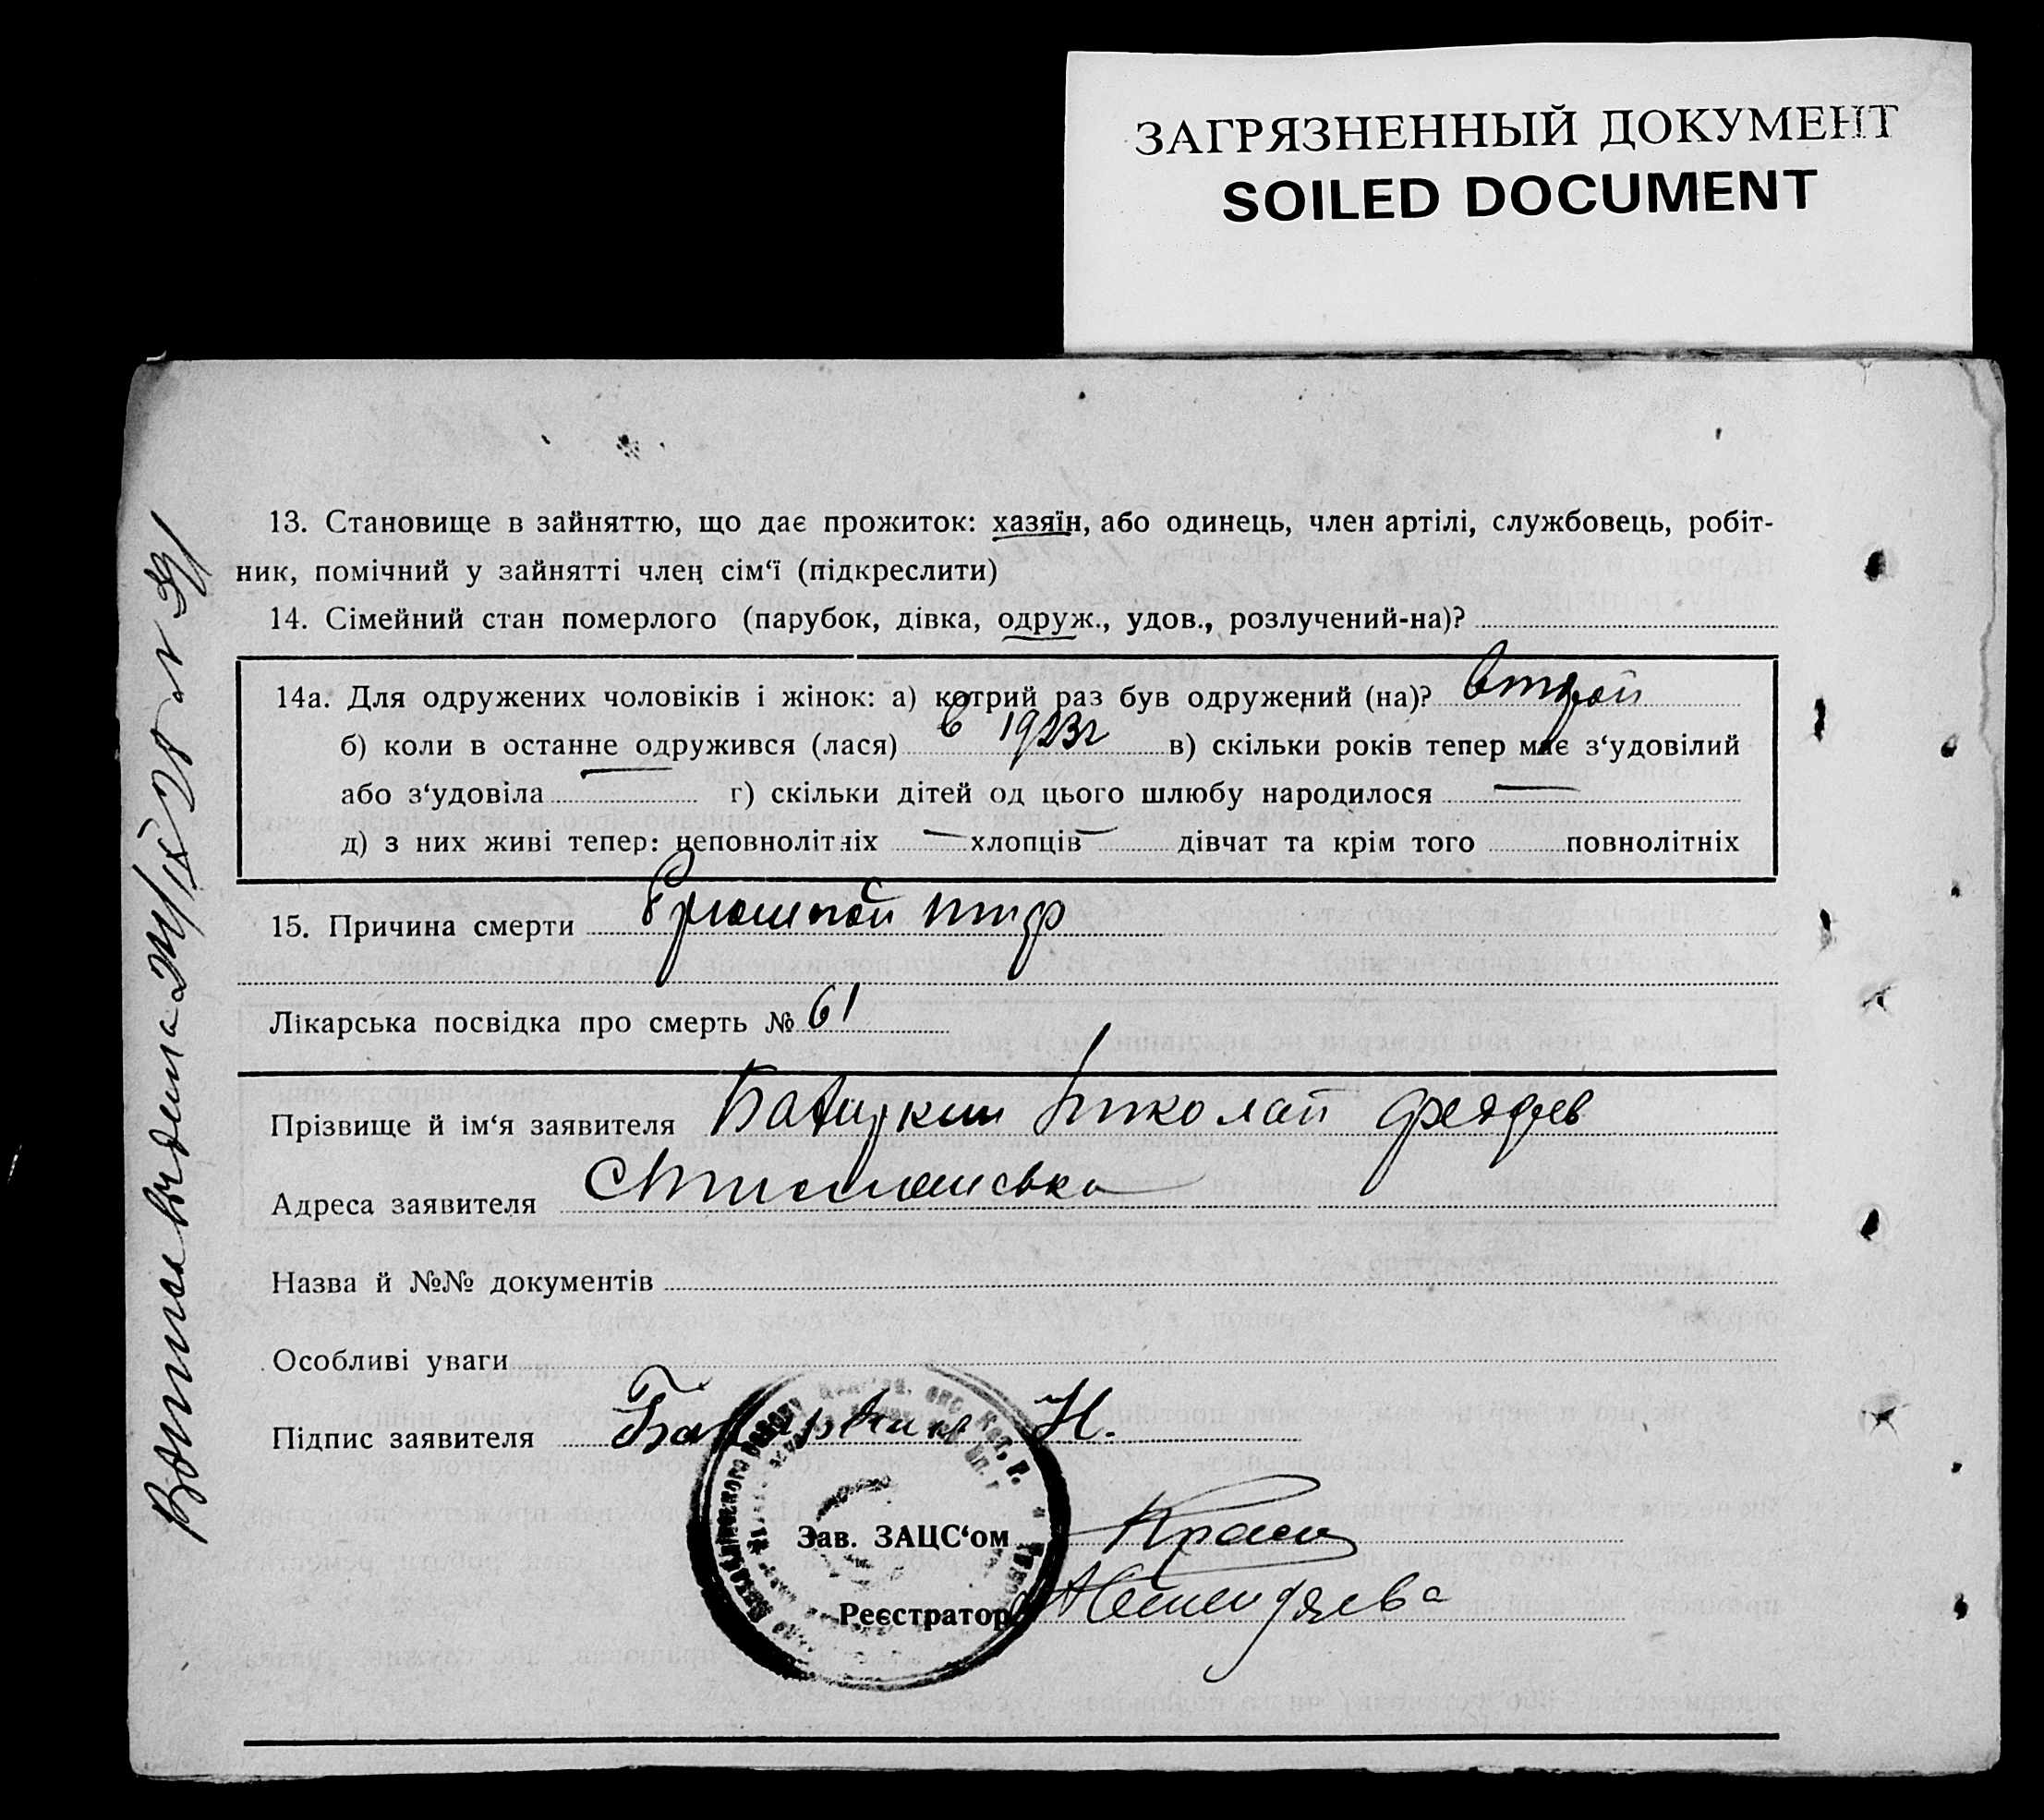 ЗАГРЯЗНЕННЫЙ ДОКУМЕНТ
SOILED DOCUMENT
13. Становище в зайняттю, що дає прожиток: хазяїн, або одинець, член артілі, службовець, робіт-
ник, помічний у зайнятті член сім‘ї (підкреслити)
14. Сімейний стан померлого (парубок, дівка, одруж., удов., розлучений-на)?
14а. Для одружених чоловіків і жінок: а) котрий раз був одружений (на)? второй
б) коли в останне одружився (лася) в 1923г в) скільки років тепер має з‘удовілий
або з‘удовіла — г) скільки дітей од цього шлюбу народилося —
д) з них живі тепер: неповнолітніх — хлопців — дівчат та крім того повнолітніх
15. Причина смерти брюшной тиф
Лікарська посвідка про смерть № 61
Прізвище й ім‘я заявителя Николай
Адреса заявителя
Назва й №№ документів
Особливі уваги
Підпис заявителя Н.
Зав. ЗАЦС‘ом
Реєстратор